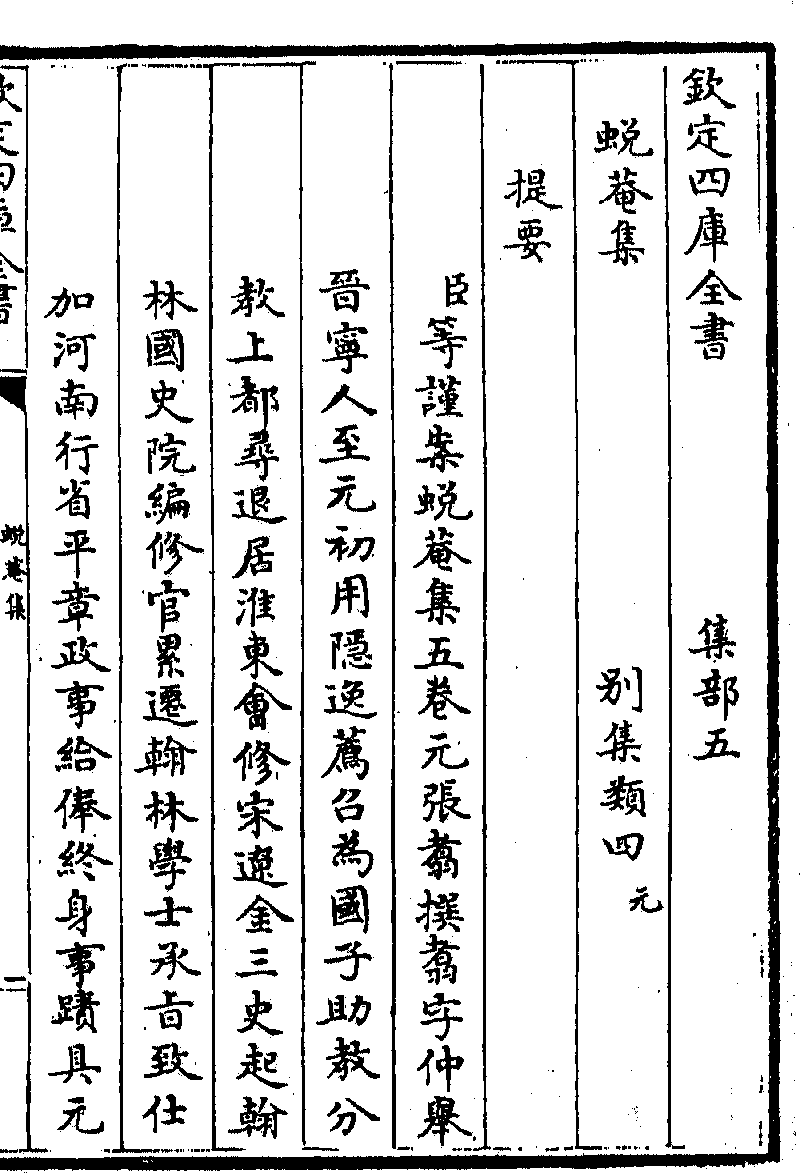 欽定四庫全書　集部五
蛻菴集　別集類四 元
提要
臣等謹案蛻菴集五巻元張翥撰翥字仲舉
晉寧人至元初用隱逸薦召為國子助教分
教上都尋退居淮東會修宋遼金三史起翰
林國史院編修官累遷翰林學士承旨致仕
加河南行省平章政事給俸終身事蹟具元
欽定四庫全書
蛻菴集
一